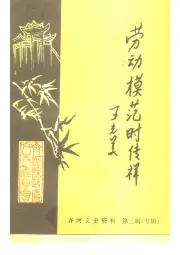 劳动模范时传祥
齐河文史资料 第三辑(专辑)